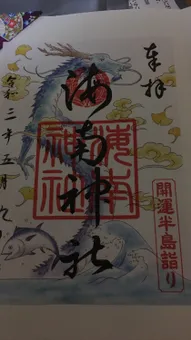 奉拝
海南神社
海南神社
開運半島詣り
令和三年五月九